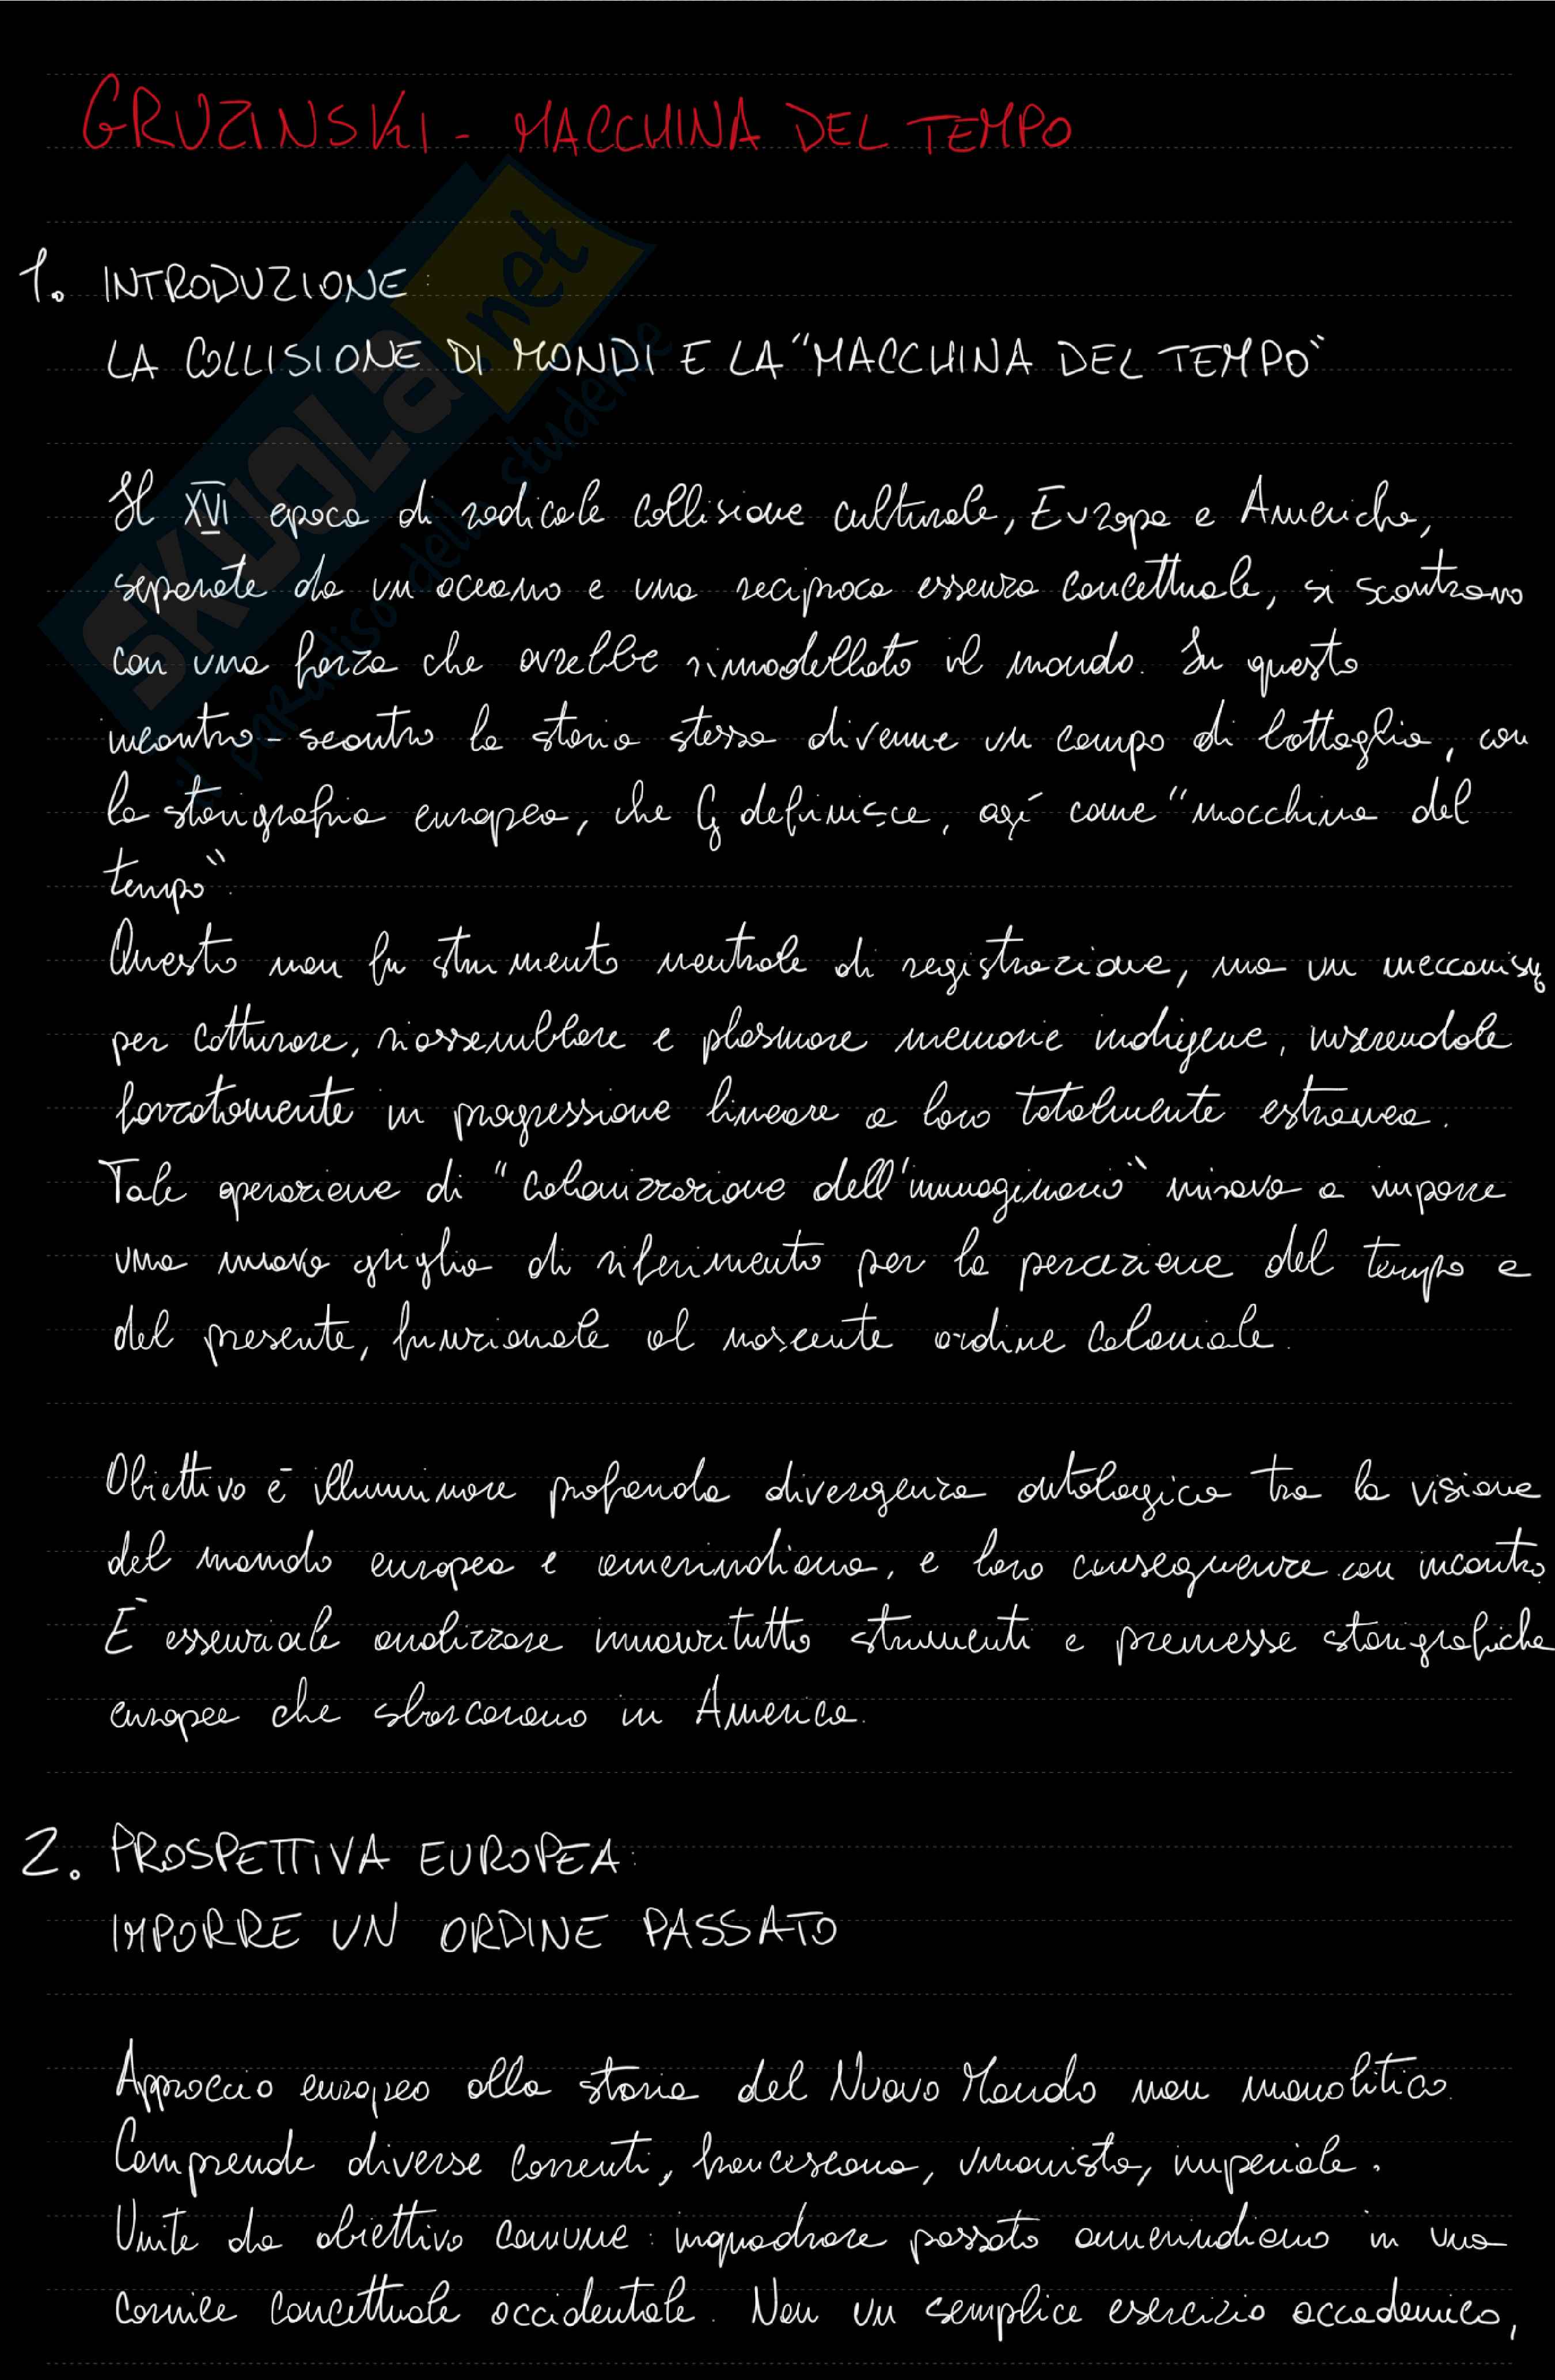 GRUZINSKI - MACCHINA DEL TEMPO
1. INTRODUZIONE:
LA COLLISIONE DI MONDI E LA "MACCHINA DEL TEMPO"
Il XVI epoca di radicale collisione culturale, Europa e Americhe,
separate da un oceano e una reciproca essenza concettuale, si scontrano
con una forza che avrebbe rimodellato il mondo. In questo
incontro-scontro la storia stessa divenne un campo di battaglia, con
la storigrafia europea, che G definisce, agì come "macchina del
tempo".
Questo non fu strumento neutrale di registrazione, ma un meccanism
per catturare, riassemblare e plasmare memorie indigene, inserendole
forzatamente in progressione lineare a loro totalmente estranea.
Tale operazione di "colonizzazione dell'immaginario" mirava a imporre
una nuova griglia di riferimento per la percezione del tempo e
del presente, funzionale al nascente ordine coloniale.
Obiettivo è illuminare profonda divergenza ontologica tra la visione
del mondo europea e amerindiana, e loro conseguenze con incontro
È essenziale analizzare innanzitutto strumenti e premesse storigrafiche
europee che sbarcarono in America.
2. PROSPETTIVA EUROPEA:
IMPORRE UN ORDINE PASSATO
Approccio europeo alla storia del Nuovo Mondo non monolitico.
Comprende diverse correnti, francescana, umanista, imperiale.
Unite da obiettivo comune: inquadrare passato amerindiano in una
cornice concettuale occidentale. Non un semplice esercizio accademico,
SKUOLa.net
il paradiso dello studente